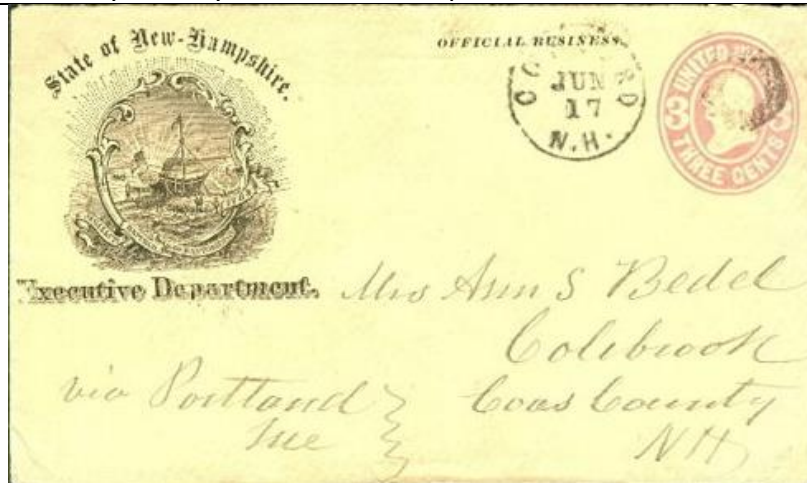 State of New-Hampshire.
OFFICIAL BUSINESS
JUN
17
N.H.
UNITED
3 3
THREE CENTS
Executive Department.
Mrs Ann S Bedel
Colebrook
Coos County
NH
via Portland
Me